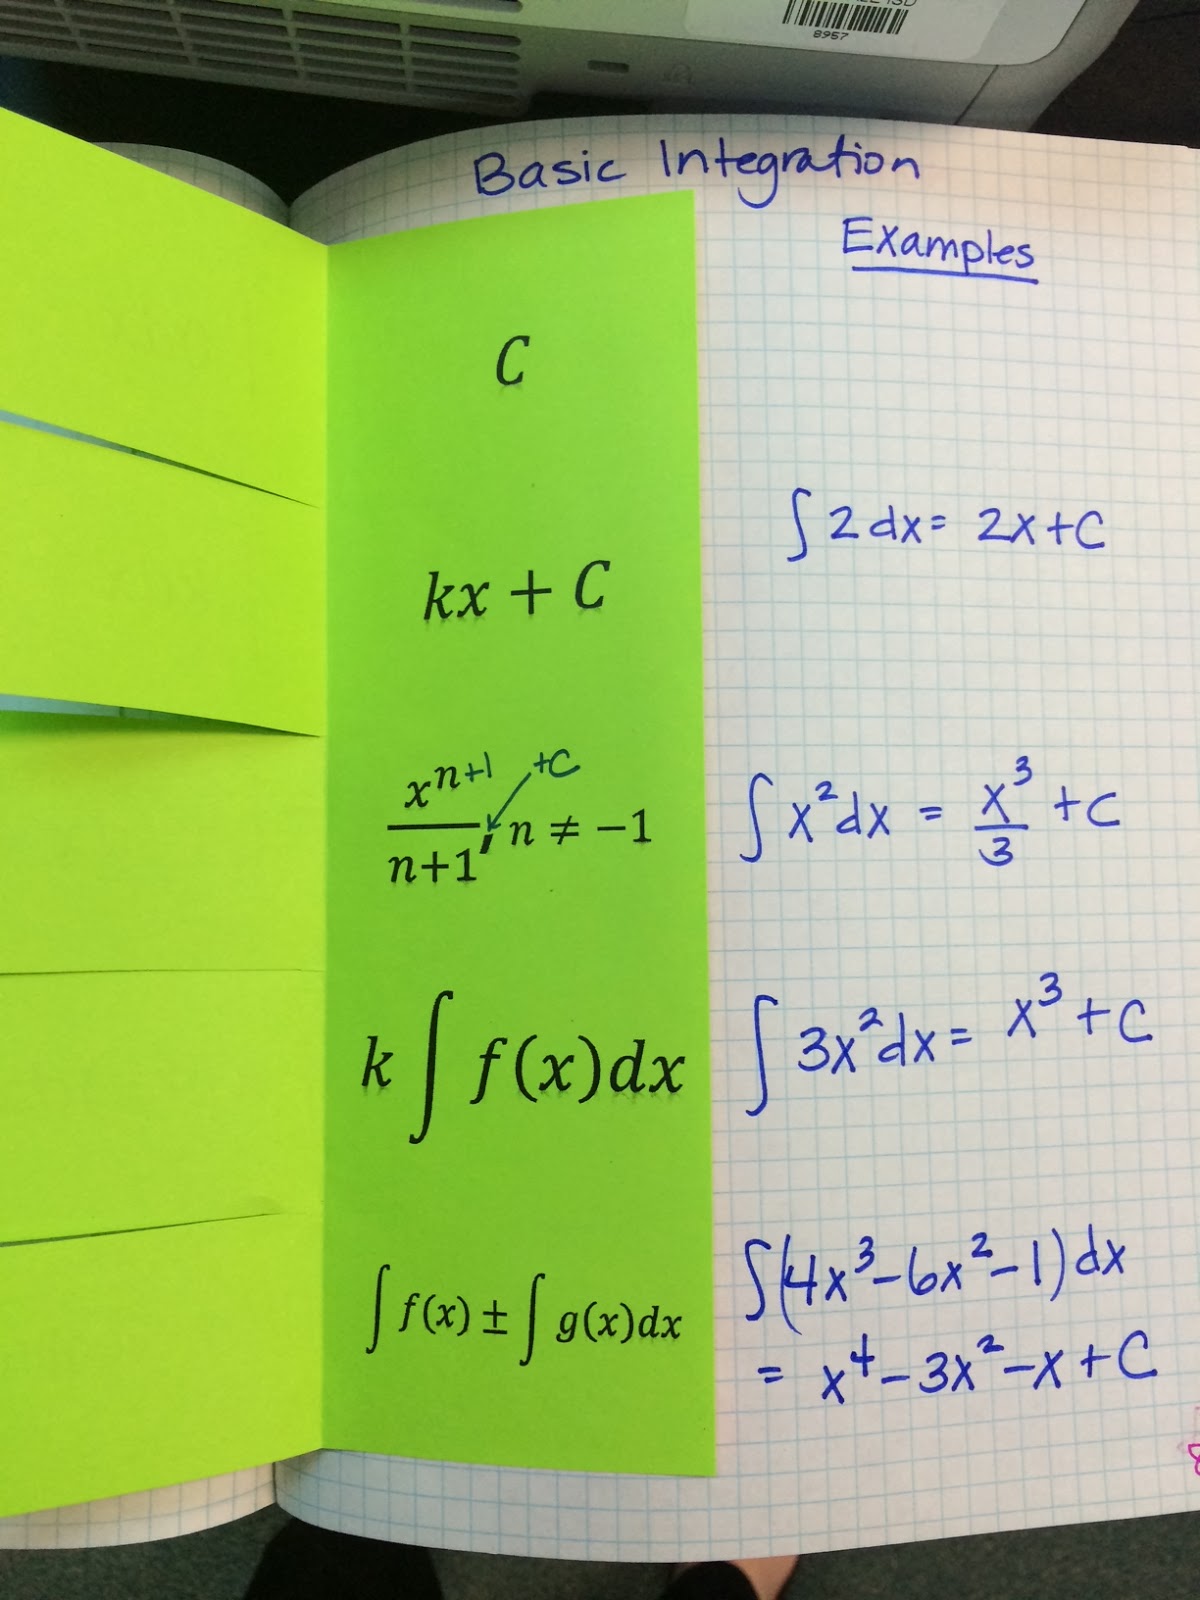 8957
Basic Integration
Examples
C
∫ 2 dx = 2x + C
kx + C
+C
x^{n+1}/n+1, n ≠ −1
∫ x² dx = x³/3 + C
k ∫ f(x)dx
∫ 3x² dx = x³ + C
∫ f(x) ± ∫ g(x)dx
∫(4x³ − 6x² − 1) dx
= x⁴ − 3x² − x + C